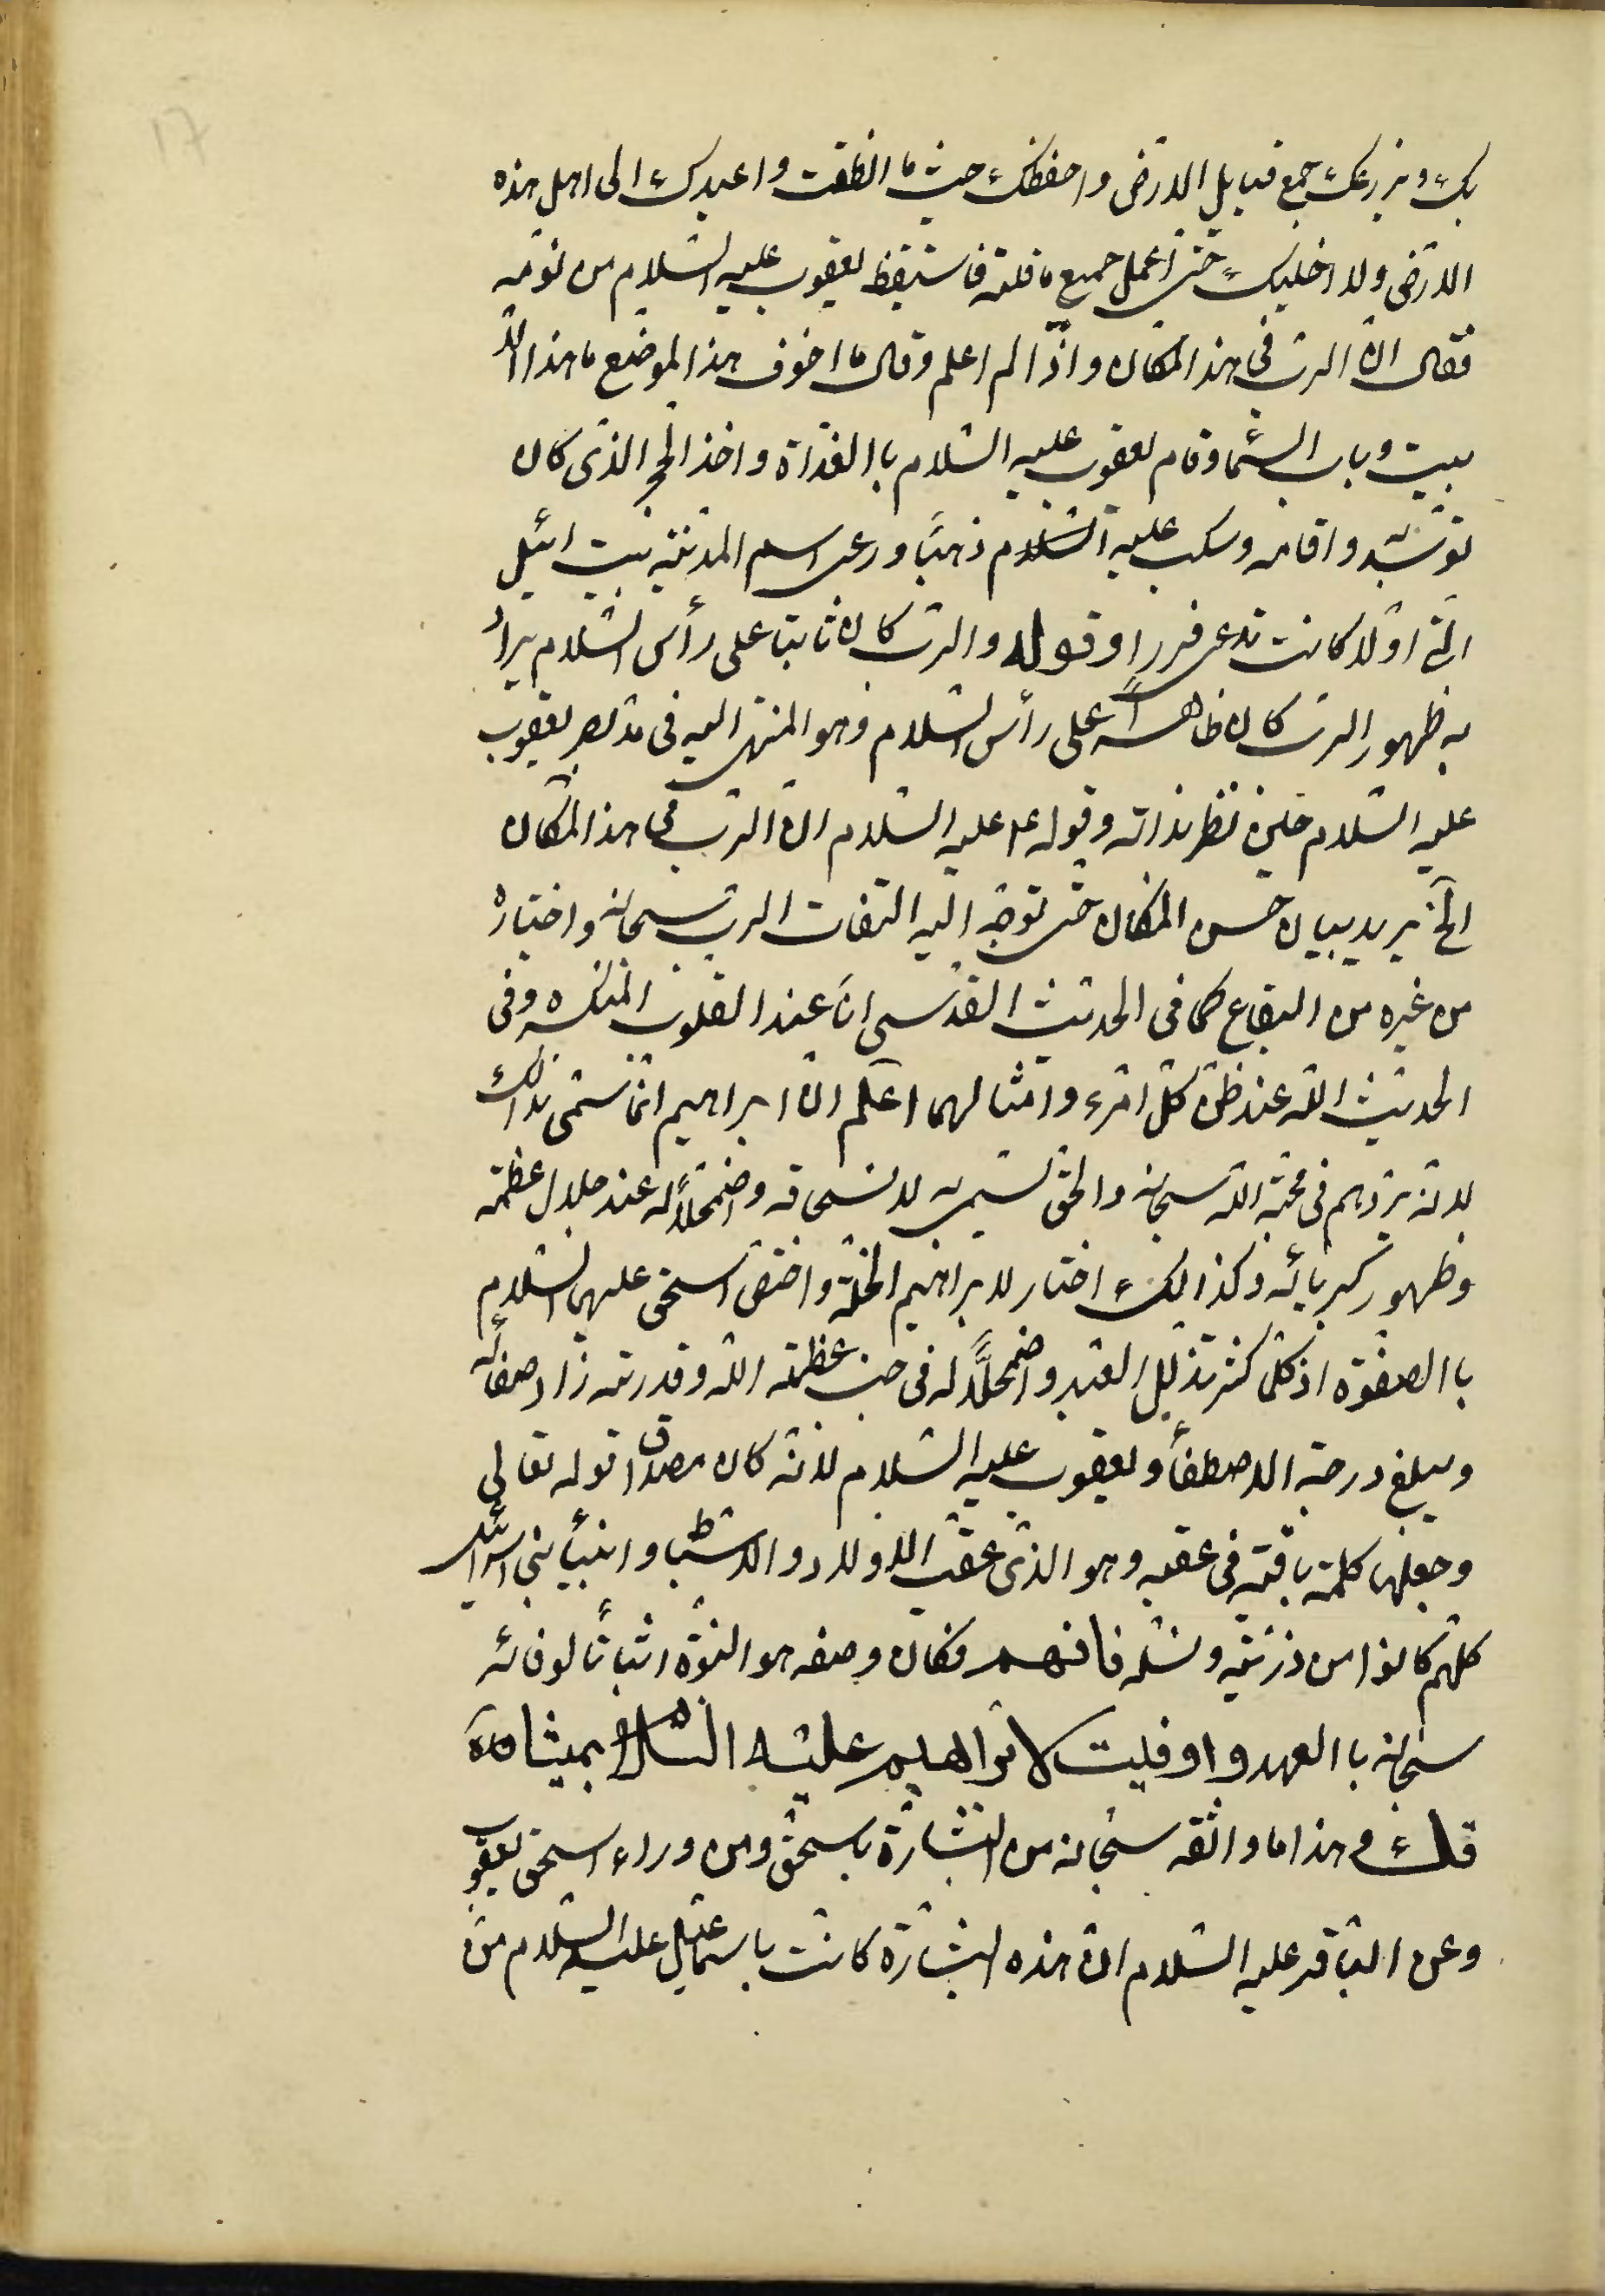 17
بك وبزرعك جميع قبايل الارض واحفظك حيث ما انطلقت واعيدك الى اهل هذه
الارض ولا اخليك حتى اعمل جميع ما قلته فاستيقظ يعقوب عليه السلام من نومه
فقال ان الرب فى هذا المكان واذا لم اعلم وقال ما اخوف هذا الموضع ما هذا الا
بيت وباب السّما وقام يعقوب عليه السّلام باالغداة واخذ الحجر الذى كان
توسّده واقامه وسكب عليه السّلام ذهبًا ودعى اسم المدينة بيت ائيل
التى اوّلا كانت تدعى فررا وقوله والربّ كان ثابتا على رأس السّلام يراد
به ظهور الربّ كان ظاهراً على رأس السّلام وهو المنتهى اليه فى يعقوب
عليه السّلام حين نظر بذاته وقوله عليه السّلام انّ الربّ فى هذا المكان
الخ يريد بيان حسن المكان حتى توجّه اليه التفات الربّ سبحانه واختاره
من غيره من البقاع كما فى الحديث القدسى انا عند القلوب المنكسره وفى
الحديث الله عند ظنّ كلّ امرء وامثالهما اعلم انّ ابراهيم انّما سمّى بذالك
لانّه يريد يهم فى محبّة الله سبحانه والحق لانسحاقه واضمحلاله عند جلال عظمته
وظهور كبريائه وكذالك اختار لابراهيم الخلّة واختصّ اسحق عليهما السّلام
باالصفوة اذ كلّما كثر تذلّل العبد واضمحلاله فى جنب عظمة الله وقدرته زاد صفائه
ويبلغ درجة الاصطفاء ويعقوب عليه السّلام لانّه كان مصداق قوله تعالى
وجعلها كلمة باقية فى عقبه وهو الذى عقب الاولاد والاسباط وانبياء بنى اسرائيل
كلّهم كانوا من ذرّيّته ونسله فافهم فكان وصفه هو النبوّة اثباتًا لوفائه
سبحانه باالعهد واوفيت لابراهيم عليه السّلام بميثاقك
قلت وهذا ما واثقه سبحانه من البشارة باسحق ومن وراء اسحق يعقوب
وعن الباقر عليه السّلام انّ هذه البشارة كانت باسماعيل عليه السّلام من